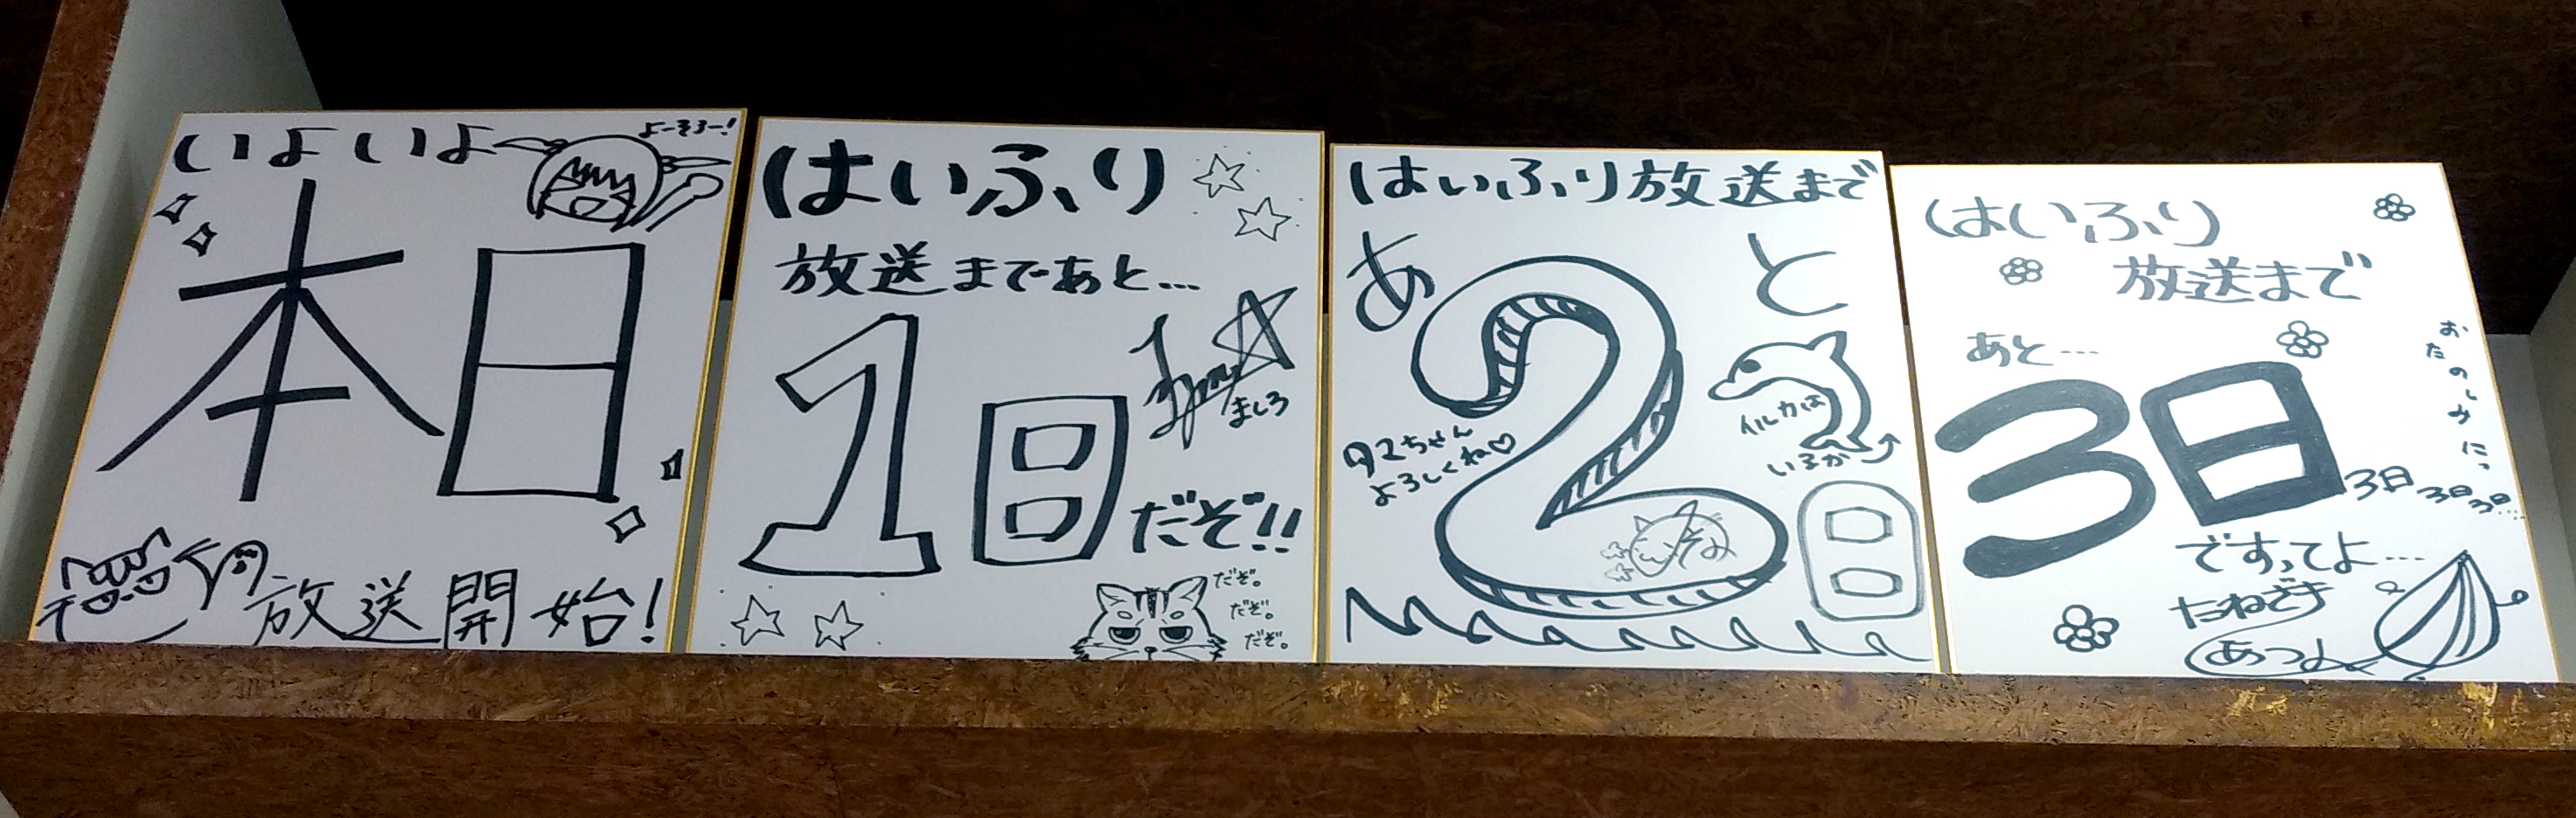 いよいよ
よーそろー!
本日
放送開始!
はいふり
放送まであと…
1日
ましろ
だぞ!!
だぞ。
だぞ。
だぞ。
はいふり放送まで
あと
2日
イルカは
いるか
タマちゃん
よろしくね♡
はいふり
放送まで
あと…
3日
3日 3日 3日…
おたのしみにっ
ですってよ…
たねざき
あつみ